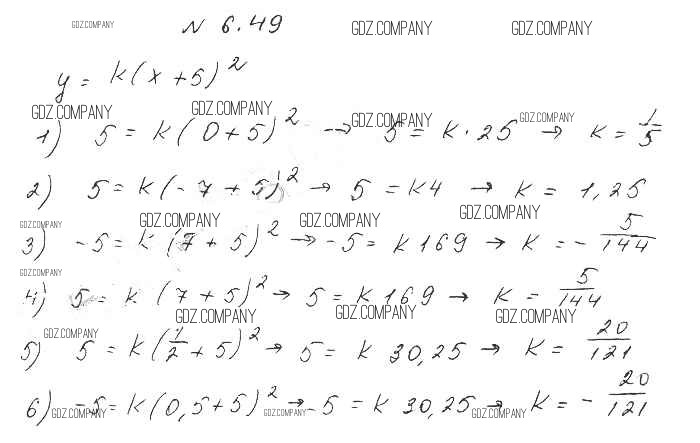 GDZ.COMPANY N 6.49 GDZ.COMPANY GDZ.COMPANY
y = k(x+5)²
GDZ.COMPANY GDZ.COMPANY GDZ.COMPANY GDZ.COMPANY
1) 5 = k(0+5)² → 5 = k·25 → k = 1/5
2) 5 = k(-7+5)² → 5 = k4 → k = 1,25
GDZ.COMPANY GDZ.COMPANY GDZ.COMPANY GDZ.COMPANY
3) -5 = k(7+5)² → -5 = k169 → k = - 5/144
GDZ.COMPANY
4) 5 = k (7+5)² → 5 = k169 → k = 5/144
GDZ.COMPANY GDZ.COMPANY GDZ.COMPANY GDZ.COMPANY
5) 5 = k(1/2+5)² → 5 = k 30,25 → k = 20/121
6) -5 = k(0,5+5)² → -5 = k 30,25 → k = - 20/121
GDZ.COMPANY GDZ.COMPANY GDZ.COMPANY